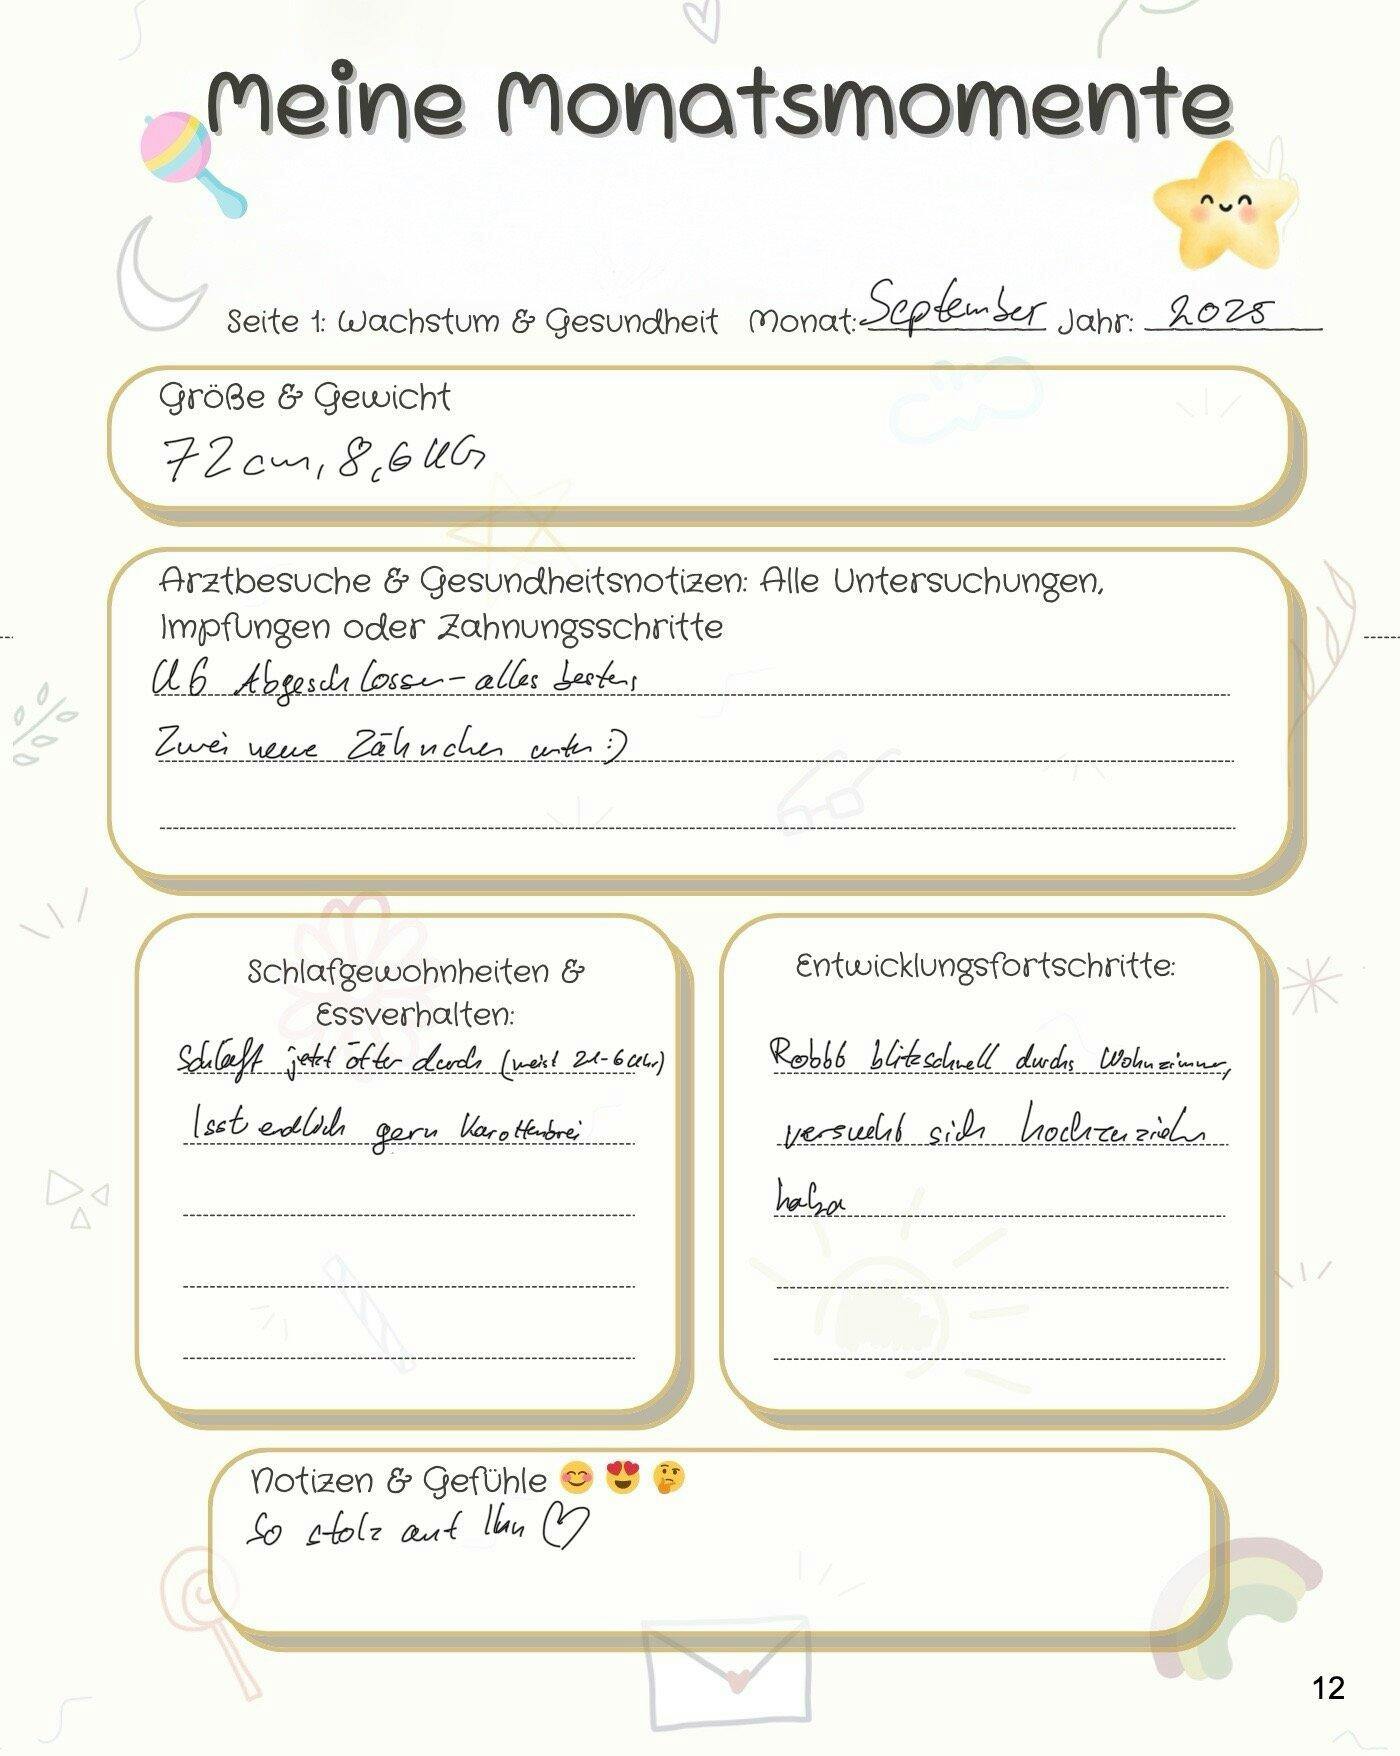 Meine Monatsmomente
Seite 1: Wachstum & Gesundheit Monat: September Jahr: 2025
Größe & Gewicht
72cm, 8,6 KG
Arztbesuche & Gesundheitsnotizen: Alle Untersuchungen,
Impfungen oder Zahnungsschritte
U6 Abgeschlossen - alles bestens
Zwei neue Zähnchen unten :)
Schlafgewohnheiten &
Essverhalten:
Schläft jetzt öfter durch (meist 21-6 Uhr)
Isst endlich gern Karottenbrei
Entwicklungsfortschritte:
Robbt blitzschnell durchs Wohnzimmer,
versucht sich hochzuziehn
Notizen & Gefühle 😊 😍 🤔
So stolz auf Ihn ♡
12